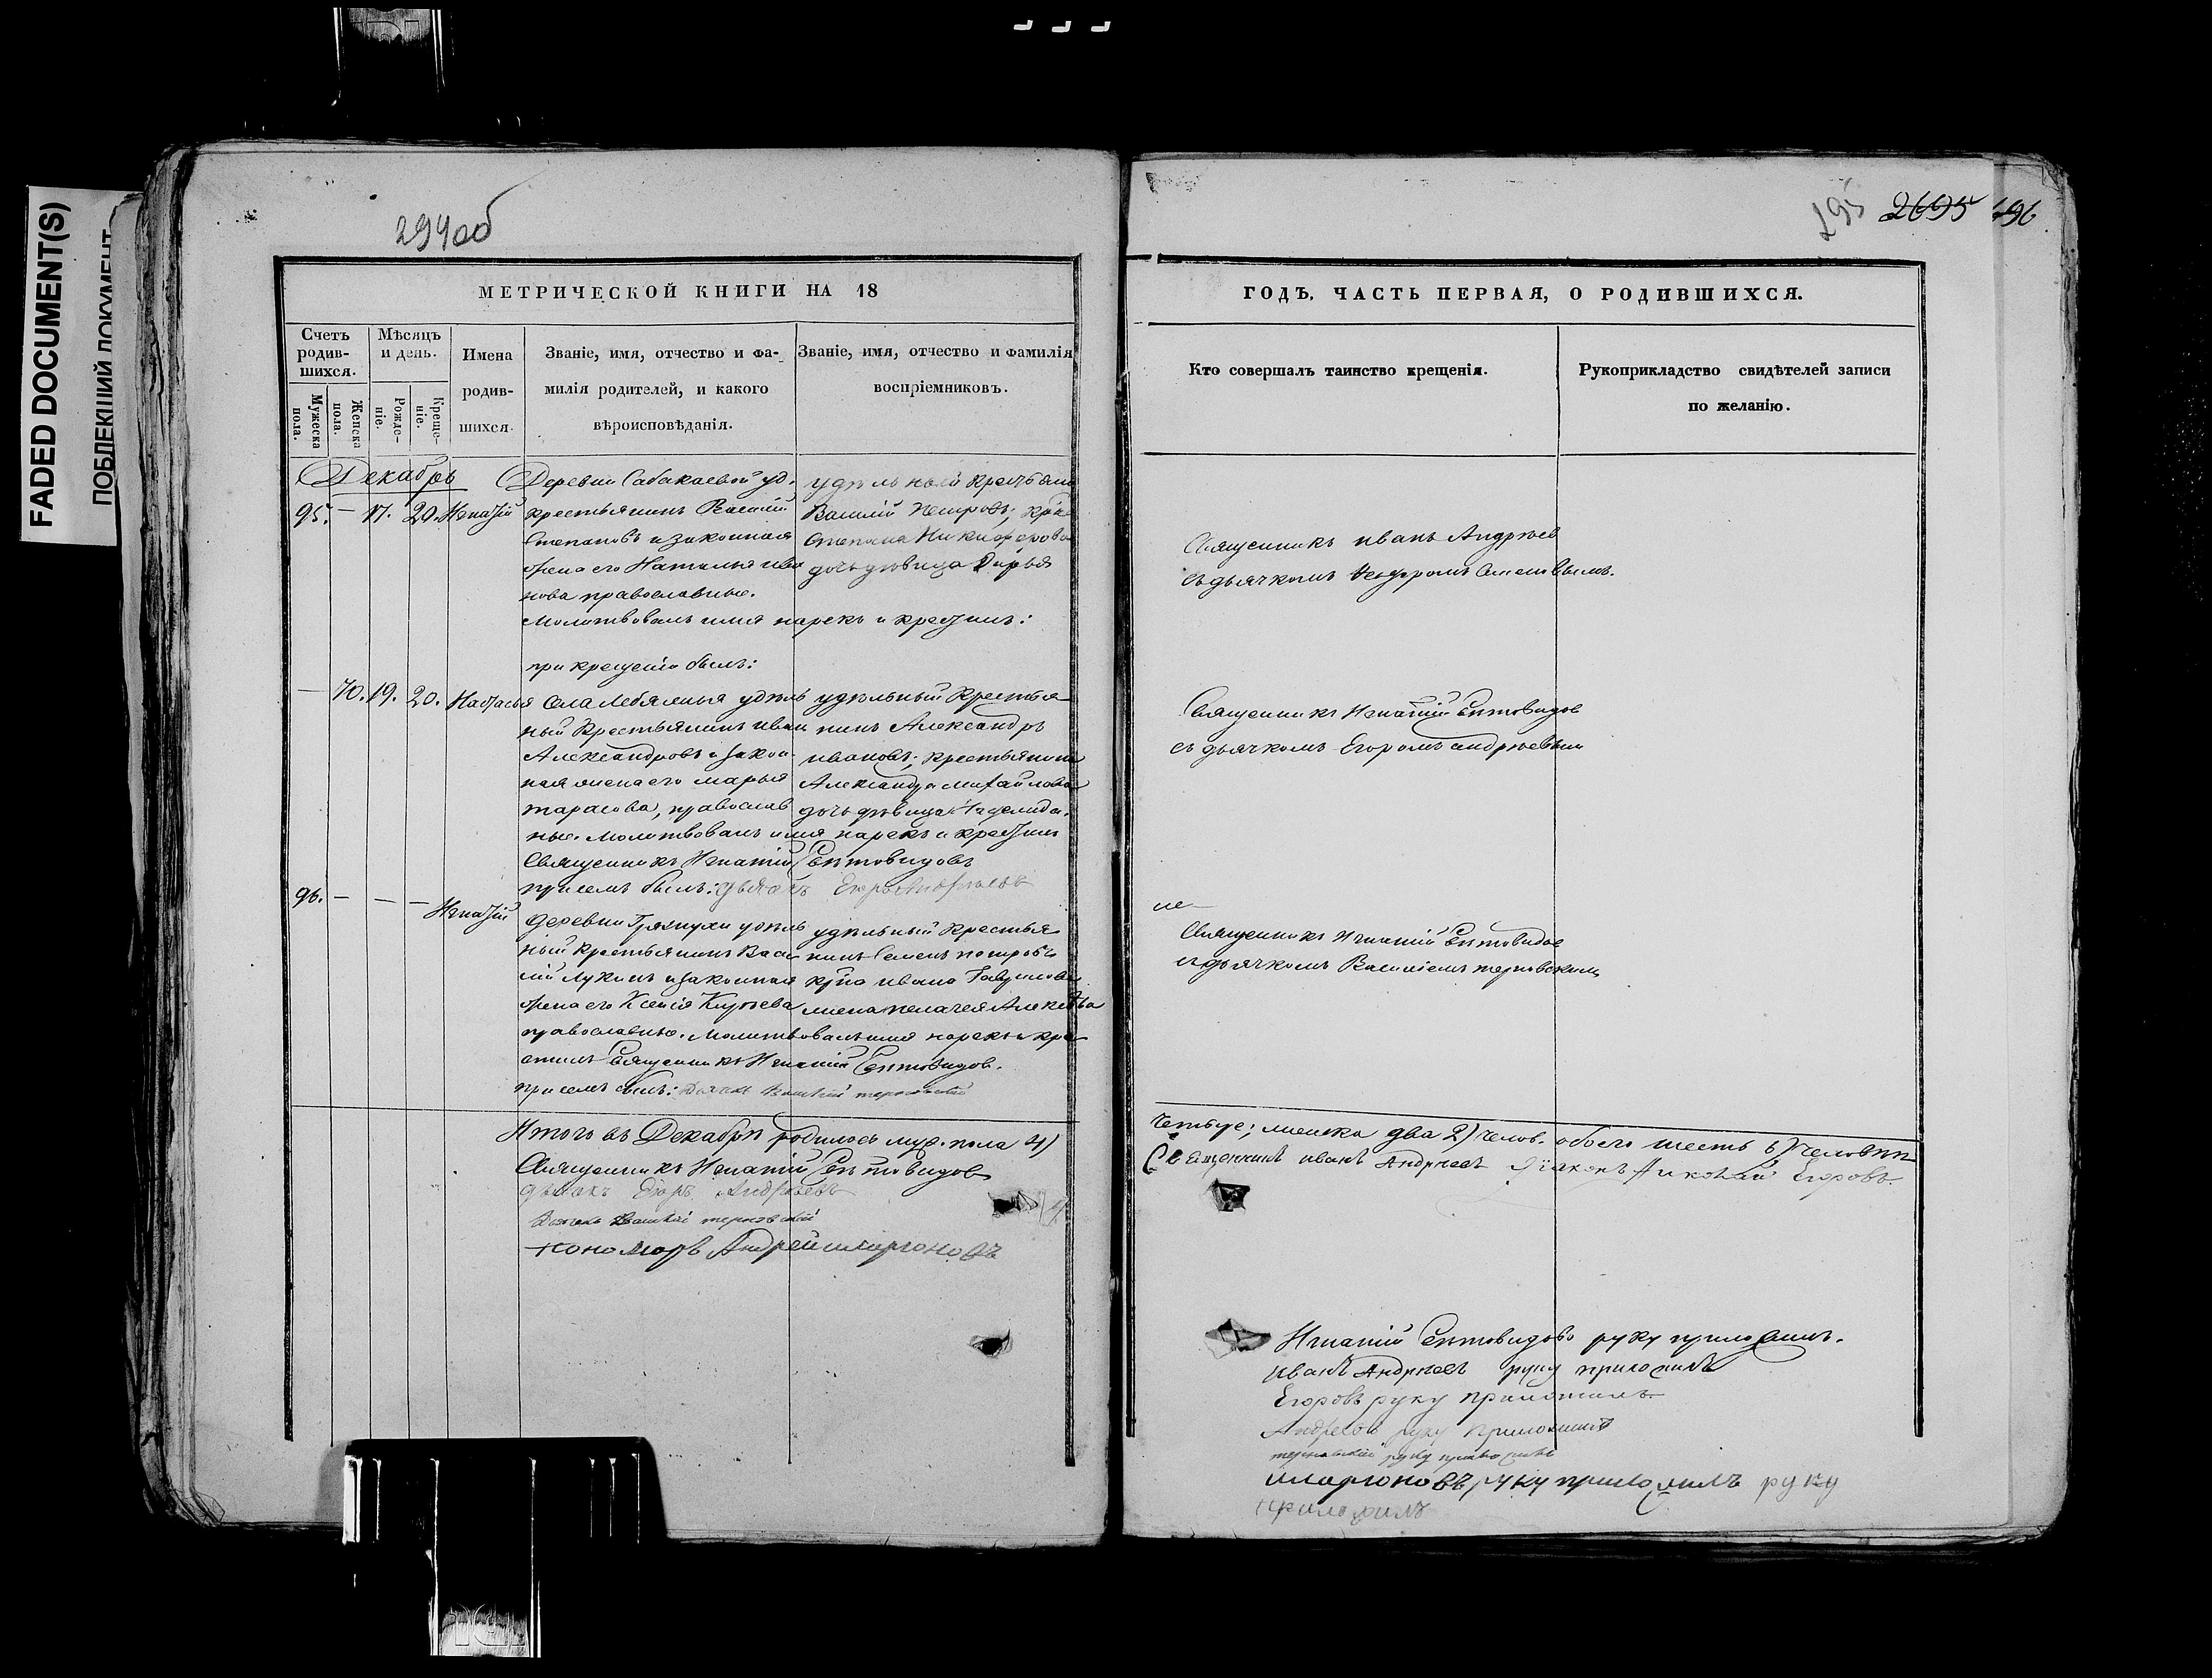 FADED DOCUMENT(S)
ПОБЛЕКШИЙ ДОКУМЕНТ
294об
МЕТРИЧЕСКОЙ КНИГИ НА 18
Счетъ родив-шихся.
Мужеска пола.
Женска пола.
Мѣсяцъ и день.
Рожде-ніе.
Креще-ніе.
Имена
родив-
шихся.
Званіе, имя, отчество и фа-
милія родителей, и какого
вѣроисповѣданія.
Званіе, имя, отчество и фамилія
воспріемниковъ.
Декабрь
95. – 17. 20. Игнатій
Деревни Сабакаевой уд.
крестьянинъ Василій
Степановъ и законная
жена его Наталья ива
нова православные.
Молитвовалъ имя нарекъ и крестилъ:
при крещеніи былъ:
удѣльной
Василій Петровъ;
Степана Никифорова
дочь дѣвица Дарья
– 70. 19. 20. Настасья
Села Лебяжья удѣль
ный Крестьянинъ иван
Александровъ и закон
ная жена его марья
тарасова, православ
ные. Молитвовалъ имя нарекъ и крестилъ
Священникъ Игнатій Септовидовъ
при семъ былъ: дьячокъ Егоръ Андреевъ
удѣльный Крестья
нинъ Александръ
ивановъ; крестьянина
Александра михайлова
дочь дѣвица
96. – – – Игнатій
деревни Грязнухи удѣль
ный крестьянинъ Васи
лій Лукинъ и законная
жена его Ксенія Кирѣева
православные. Молитвовалъ имя нарекъ и кре
стилъ Священникъ Игнатій Септовидов.
при семъ былъ: Дьячек Василій терновский
удѣльный Крестья
нинъ Семенъ петровъ
ивана Гаврилова
жена пелагея
Итого въ Декабрѣ родилось муж. пола 4)
Священникъ Игнатій Септовидов
дьячокъ Егоръ Андреевъ
Дьячекъ Василій терновскій
пономарь Андрей иларионовъ
295 2695 496
ГОДЪ. ЧАСТЬ ПЕРВАЯ, О РОДИВШИХСЯ.
Кто совершалъ таинство крещенія.
Рукоприкладство свидѣтелей записи
по желанію.
Священникъ иванъ Андреев
съ дьячкомъ
Священникъ Игнатій Септовидов
съ дьячкомъ Егоромъ андреевым
Священникъ Игнатій Септовидов
съ дьячкомъ Василіемъ терновскимъ
четыре; женска два 2) челов. обоего шесть 6) человекъ
Священникъ иванъ Андреевъ Дїаконъ Николай Егоровъ.
Игнатій Септовидовъ руку приложилъ.
иванъ Андреевъ руку приложилъ
Егоровъ руку приложилъ
Андреевъ руку приложилъ
терновскій руку приложилъ
иларионовъ руку приложилъ руку
приложилъ